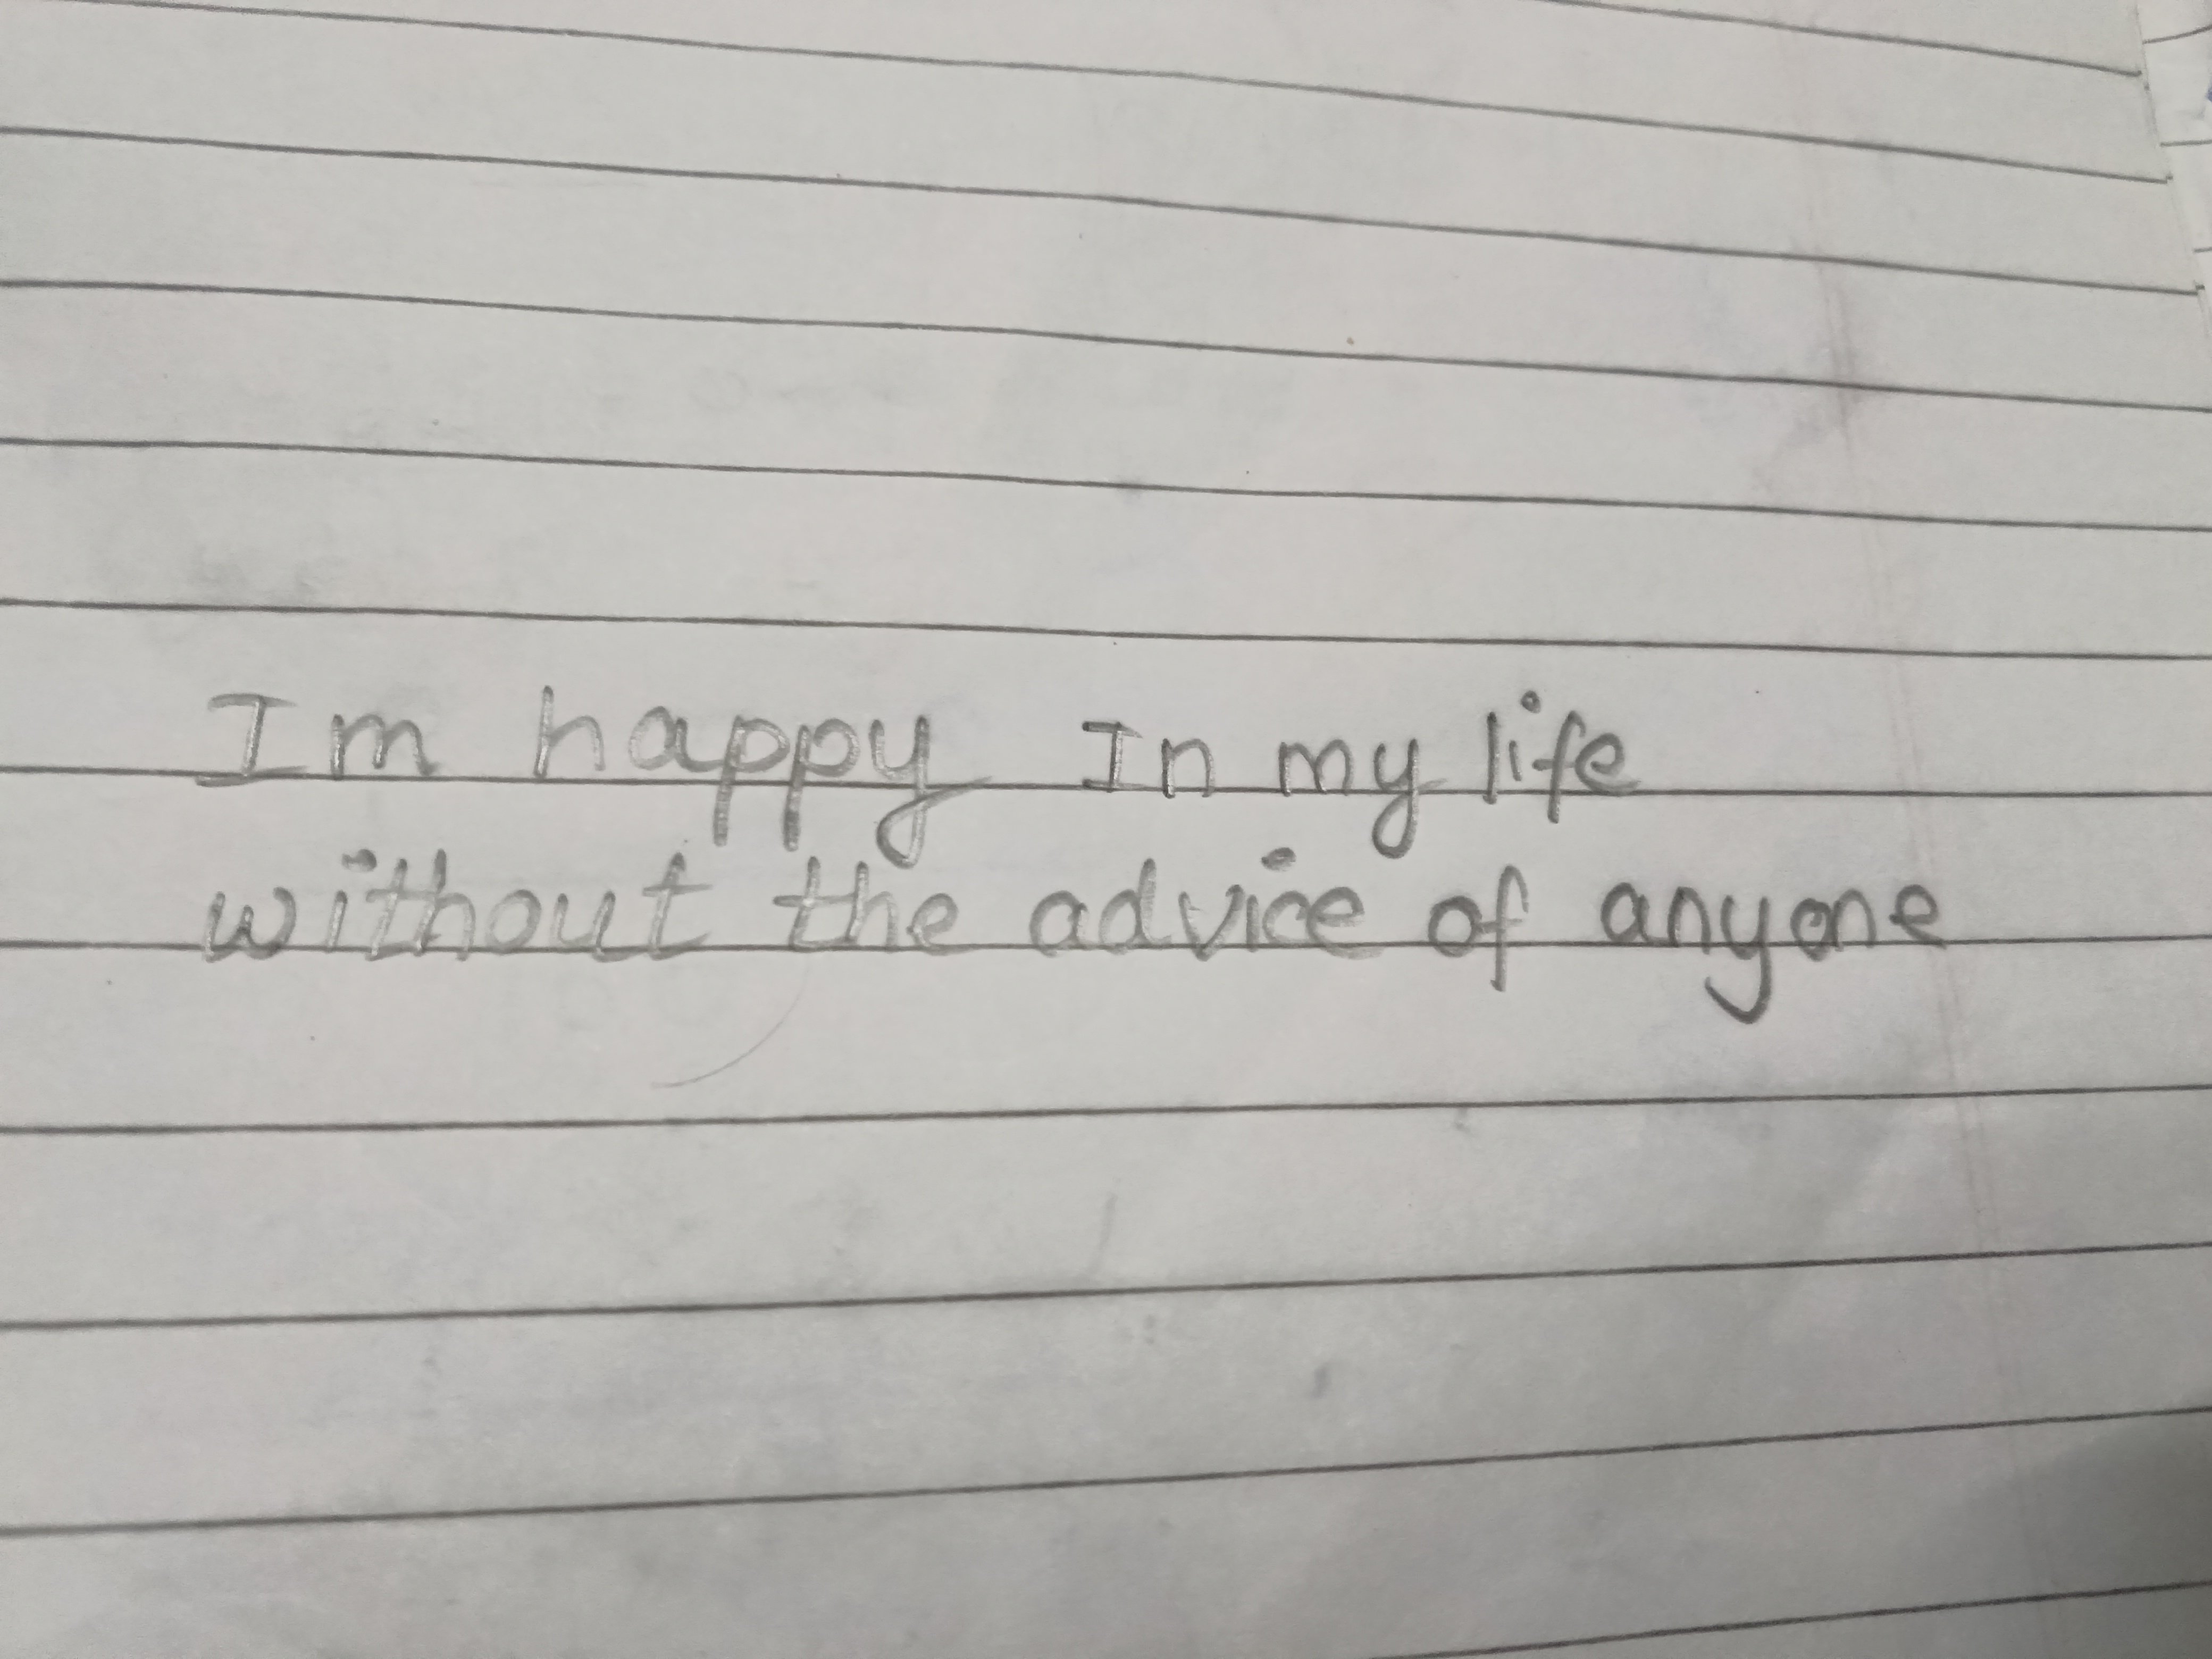 Im happy In my life
without the advice of anyone